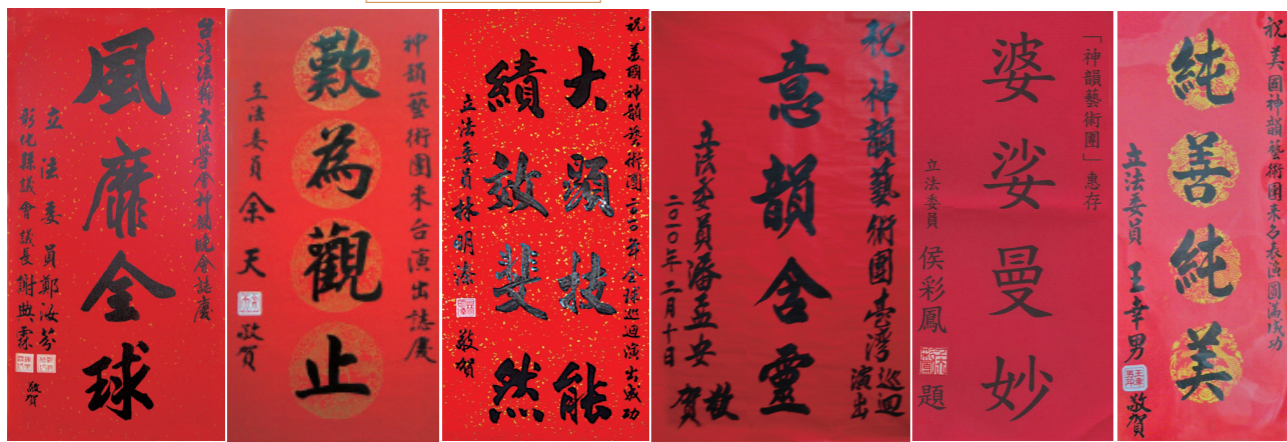 台灣法輪大法學會神韻晚會誌慶
風靡金球
立法委員鄭汝芬
彰化縣議會議長謝典霖
敬賀
神韻藝術團來台演出誌慶
歎為觀止
立法委員余天 敬賀
祝 美國神韵藝術團二〇一〇年全球巡迴演出成功
大顯技能
績效斐然
立法委員林明溱 敬賀
祝神韻藝術團臺灣巡迴演出
意韻含靈
立法委員潘孟安 敬賀
二〇一〇年二月十日
「神韻藝術團」惠存
婆娑曼妙
立法委員 侯彩鳳 題
祝美國神韻藝術團來台表演圓滿成功
純善純美
立法委員 王幸男 敬賀